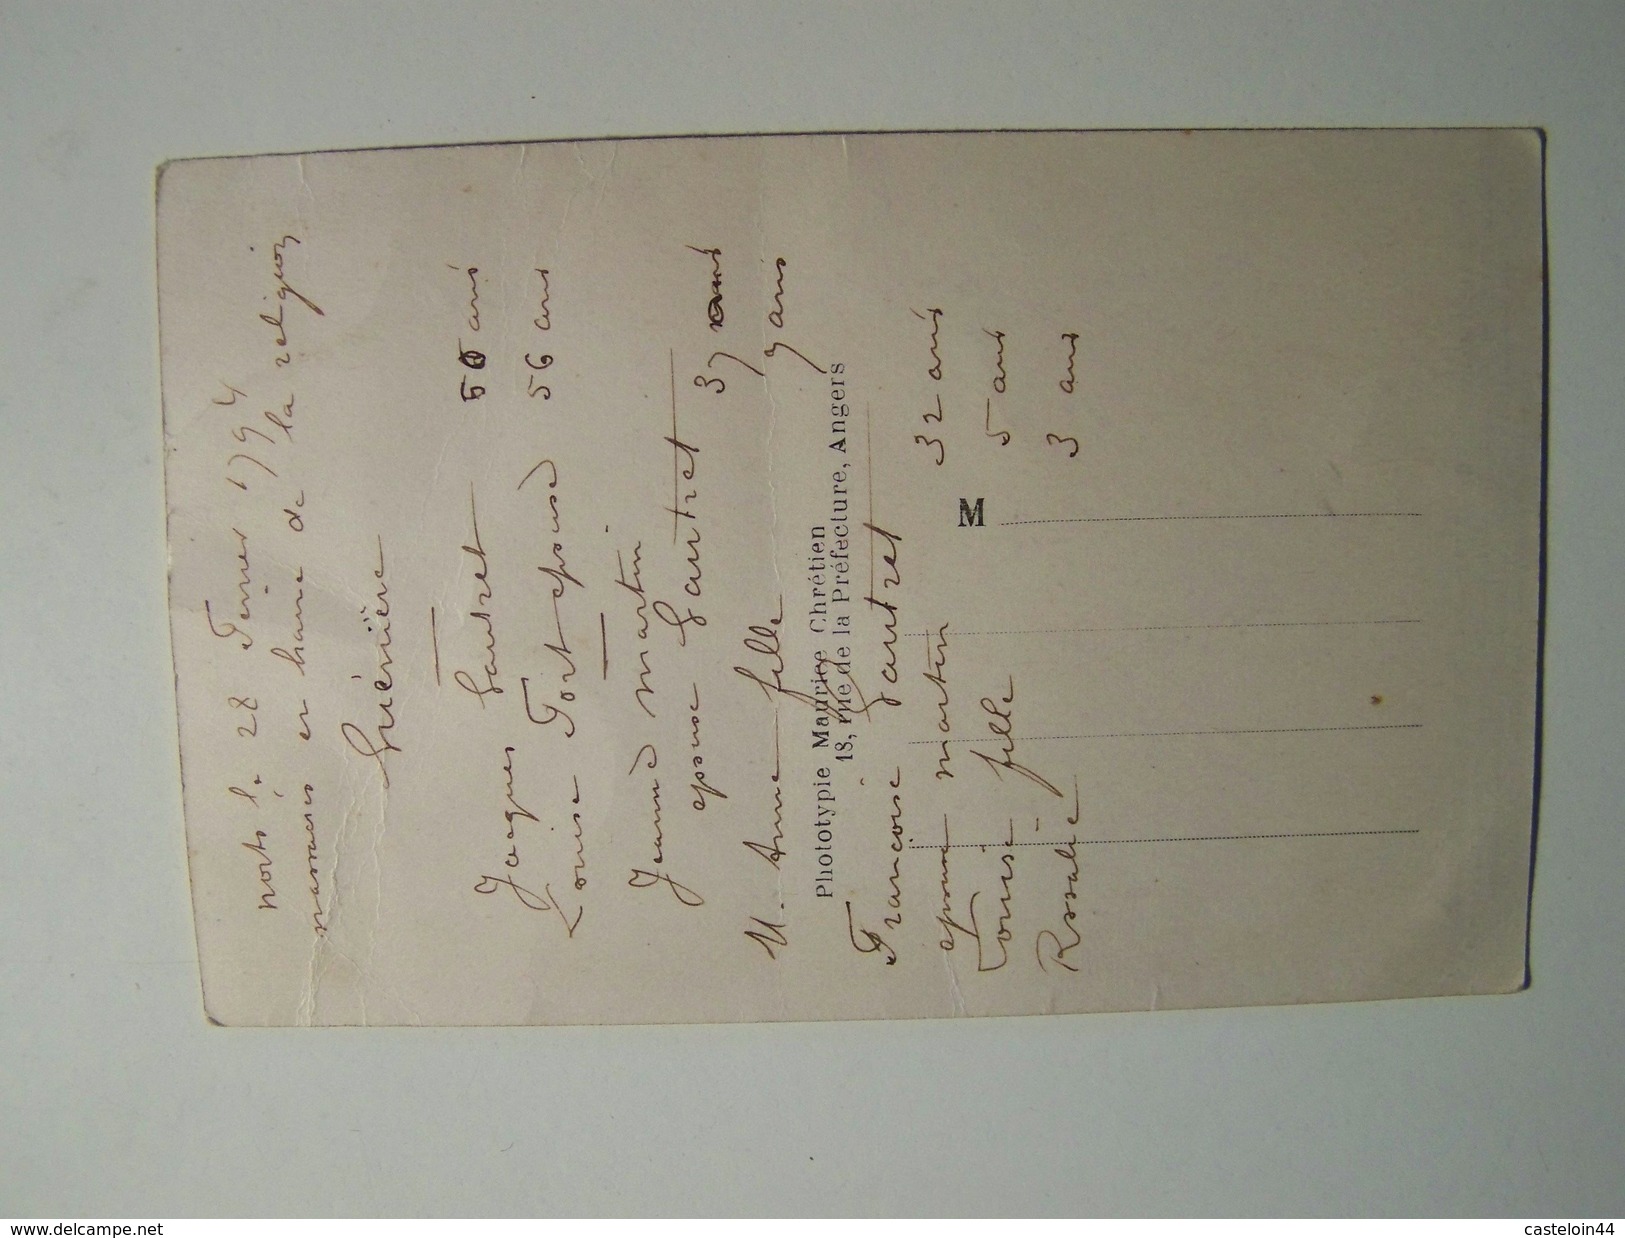 morts le 28 Fevrier 1794
massacrés en haine de la religion
Guérivière
Jacques Gautret 50 ans
Louise Fort epouse 56 ans
Jeanne Martin
epouse Gautret 37 ans
M. Anne fille 7 ans
Phototypie Maurice Chrétien
18, rue de la Préfecture, Angers
Francoise Gautret
epouse martin 32 ans
Louise fille 5 ans
Rosalie 3 ans
M
www.delcampe.net
casteloin44